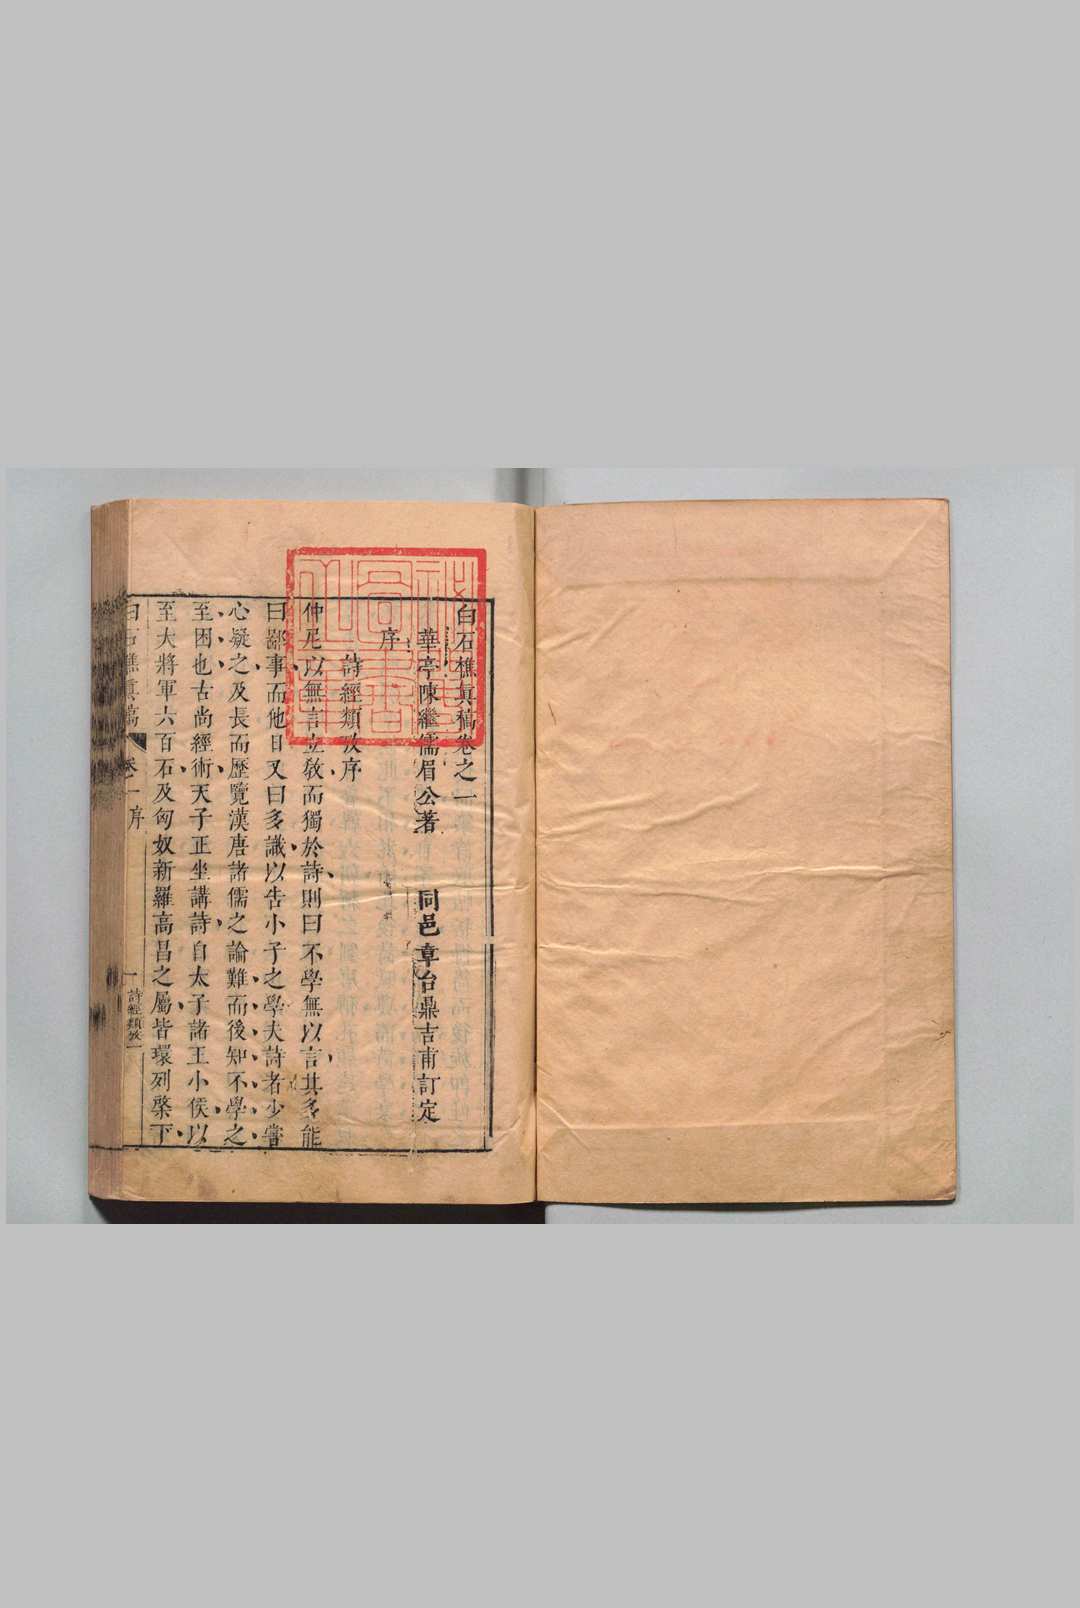 白石樵真稿卷之一
華亭陳繼儒眉公著 同邑章台鼎吉甫訂定
序
詩經類攷序
仲尼以無言立教而獨於詩則曰不學無以言其多能
曰鄙事而他日又曰多識以告小子之學夫詩者少嘗
心疑之及長而歷覽漢唐諸儒之論難而後知不學之
至困也古尚經術天子正坐講詩自太子諸王小侯以
至大將軍六百石及匈奴新羅高昌之屬皆環列槩下
白石樵真稿 卷一 序 一 詩經類攷一